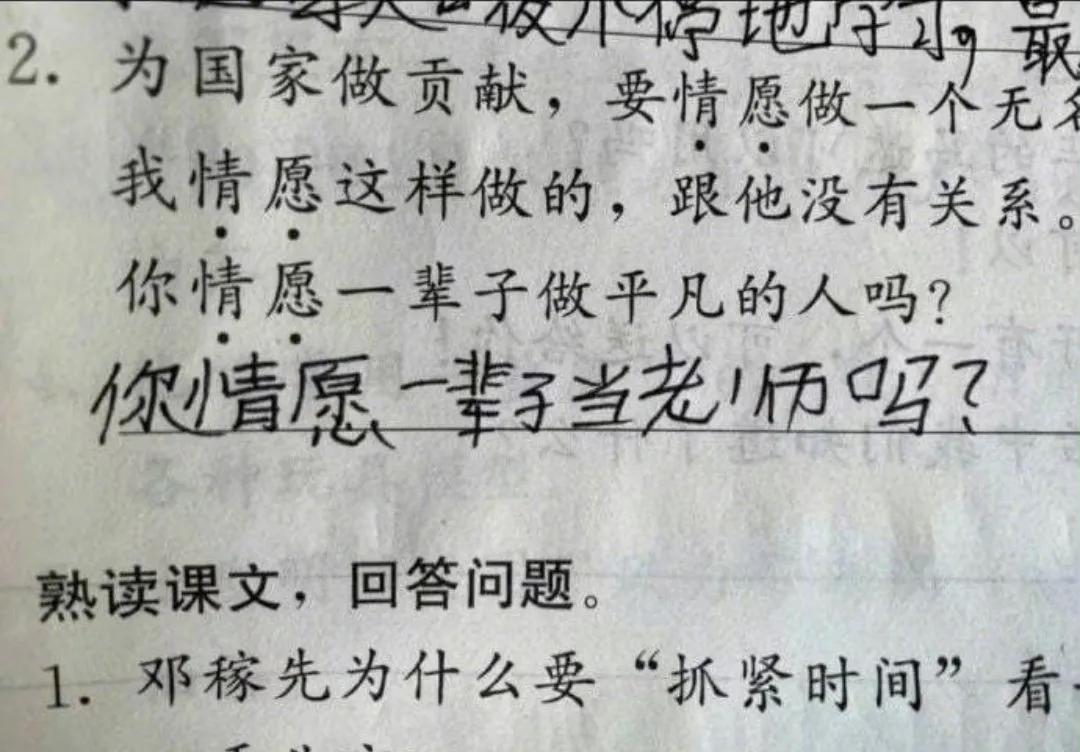 不停地学习，最
2. 为国家做贡献，要情愿做一个无名
我情愿这样做的，跟他没有关系。
你情愿一辈子做平凡的人吗？
你情愿一辈子当老师吗？
熟读课文，回答问题。
1. 邓稼先为什么要“抓紧时间”看